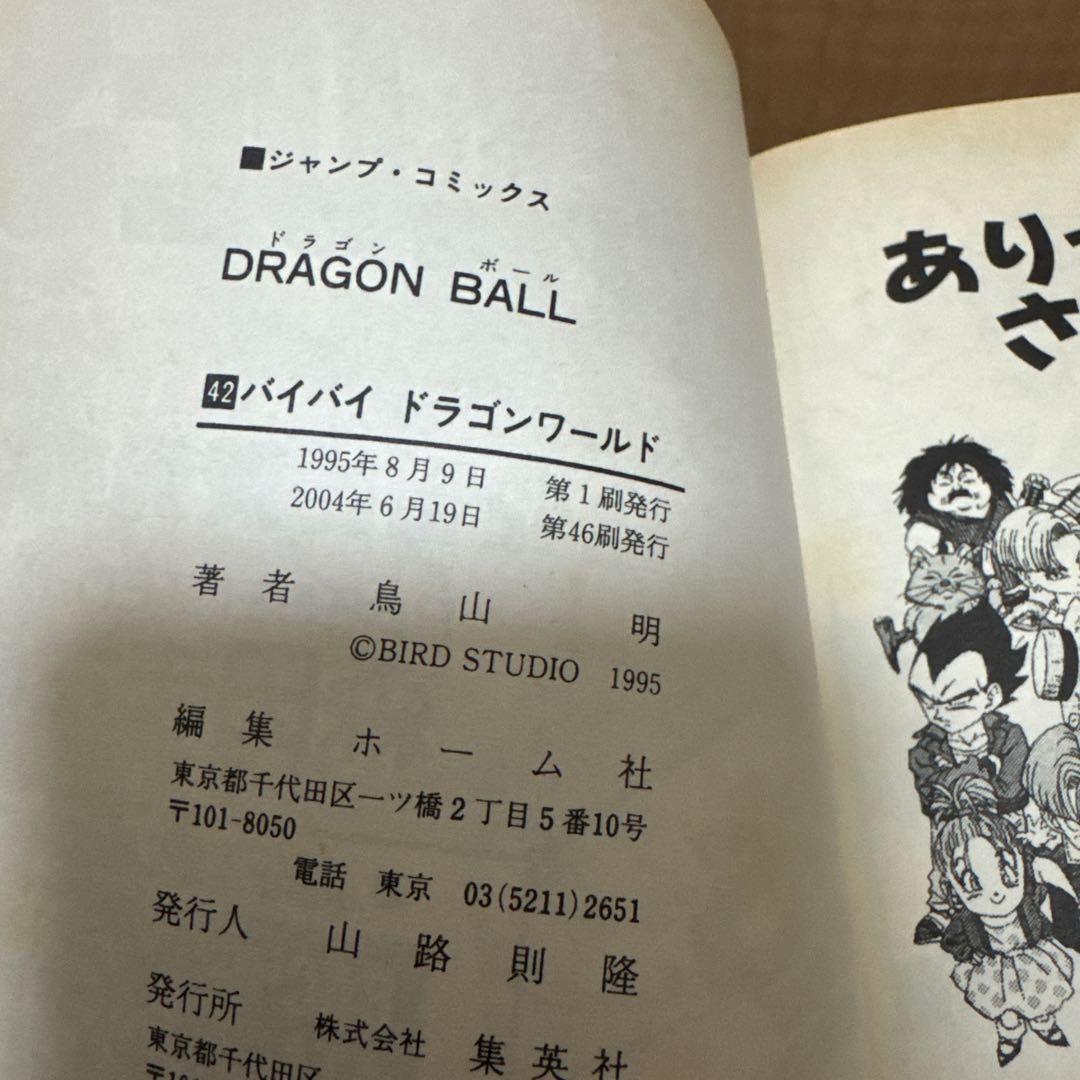 ■ジャンプ・コミックス
ドラゴン ボール
DRAGON BALL
42バイバイ ドラゴンワールド
1995年8月9日 第1刷発行
2004年6月19日 第46刷発行
著者 鳥山 明
©BIRD STUDIO 1995
編集 ホーム社
東京都千代田区一ツ橋2丁目5番10号
〒101-8050
電話 東京 03(5211)2651
発行人 山路則隆
発行所 株式会社 集英社
東京都千代田区
〒101
あり
さ